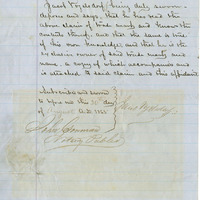 being duly sworn
depose and says, that he has read the
above claim of trade mark, and knows the
contents thereof, and that the same is true
of his own knowledge, and that he is the
exclusive owner of said trade mark, and
name, a copy of which accompanies and
is attached to said claim and this affidavit
Subscribed and sworn
to before me this
day
of A.D. 186
Notary Public